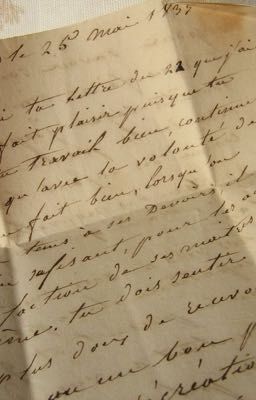 le 25 Mai 183
ta lettre du 22 que j'ai
fait plaisir puisque tu
travail bien, continue
qu'avec la volonté de
fait bien, lorsqu'on
à ses Devoirs, il
pour les
faction de ses maitres
tu dois sentir
plus doux de
un bon p
récréation